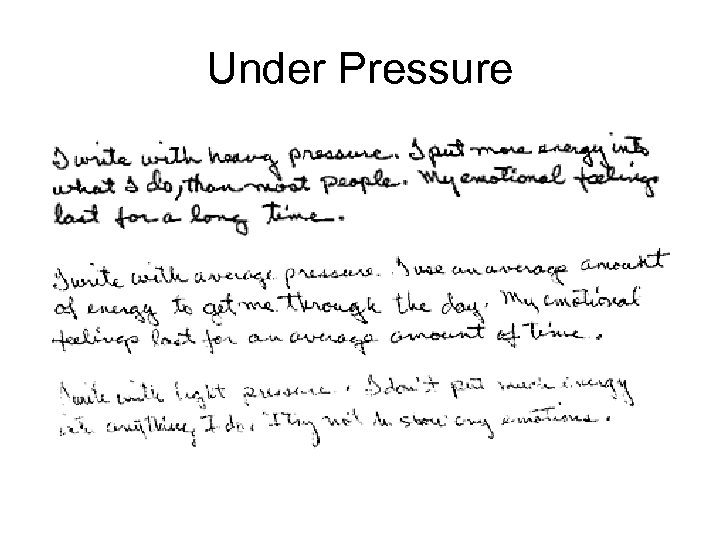 Under Pressure
I write with heavy pressure. I put more energy into
what I do, than most people. My emotional feelings
last for a long time.
I write with average pressure. I use an average amount
of energy to get me through the day. My emotional
feelings last for an average amount of time.
I write with light pressure. I don't put much energy
into anything I do. I try not to show any emotions.